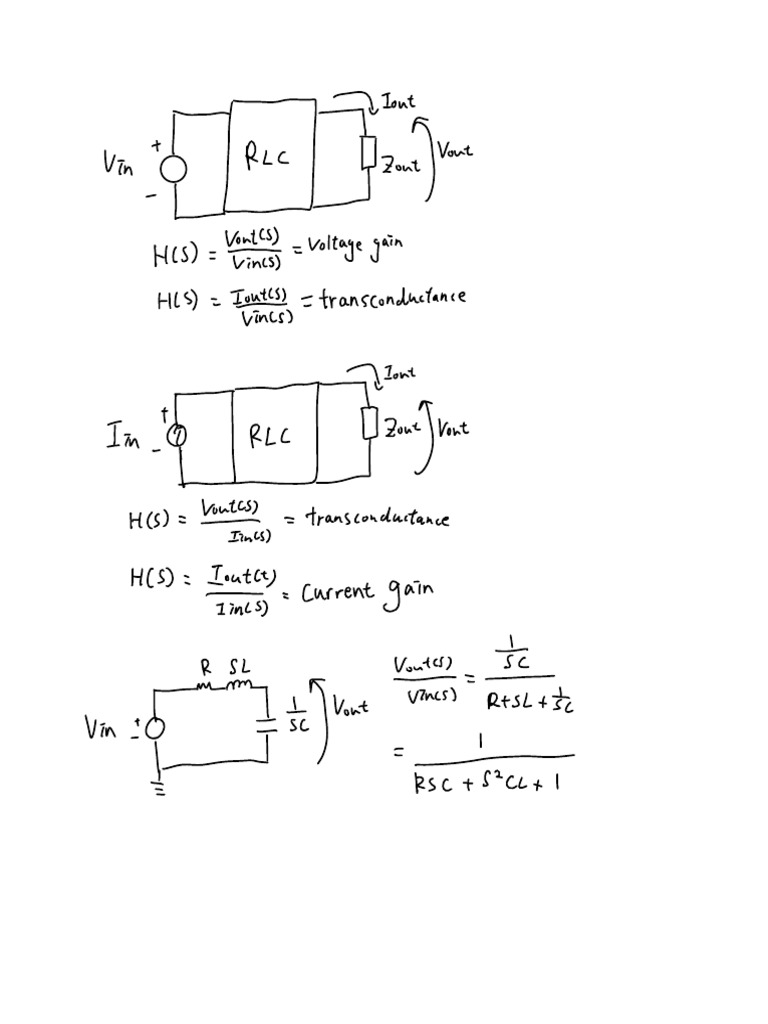 Iout
Vin + - RLC Zout Vout
H(S) = Vout(S)/Vin(S) = Voltage gain
H(S) = Iout(S)/Vin(S) = transconductance
Iout
Iin + - RLC Zout Vout
H(S) = Vout(S)/Iin(S) = transconductance
H(S) = Iout(t)/Iin(S) = Current gain
R SL
Vin + - 1/SC Vout
Vout(S)/Vin(S) = (1/SC)/(R+SL+1/SC)
= 1/(RSC + S²CL + 1)